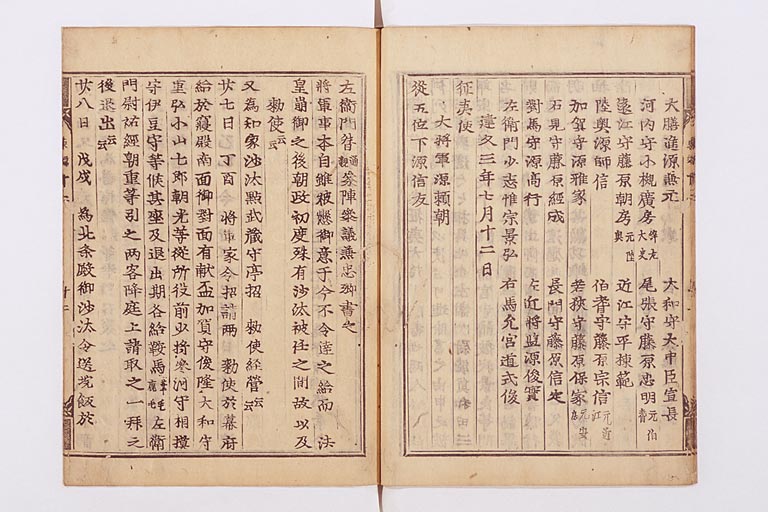 大膳進源兼元 大和守大中臣宣長
河内守小槻廣房 尾張守藤原忠明元伯耆
遠江守藤原朝房元陸奥 近江守平棟範
陸奥源師信 伯耆守藤原宗信元近江
加賀守源雅家 若狭守藤原保家元安房
石見守藤原経成 長門守藤原信定
對馬守源高行 左近将監源俊實
左衛門少志惟宗景弘 右馬允宮道式俊
建久三年七月十二日
征夷使
大将軍源頼朝
従五位下源信友
左衛門督通親参陣参議兼忠卿書之
将軍事本自雖被懸御意于今不令達之給而法
皇崩御之後朝政初度殊有沙汰被任之間故以及
勅使云云
又為知家沙汰點武蔵守亭招 勅使経營云云
廿七日 丁酉 将軍家令招請両 勅使於幕府
給於寝殿南面御對面有献盃加賀守俊隆大和守
重弘小山七郎朝光等従所役前少将参河守相摸
守伊豆守等候其座及退出期各給鞍馬葦毛鹿毛左衛
門尉祐經朝重等引之両客降庭上請取之一拜之
後退出云云
廿八日 戊戌 為北条殿御沙汰令送垸飯於